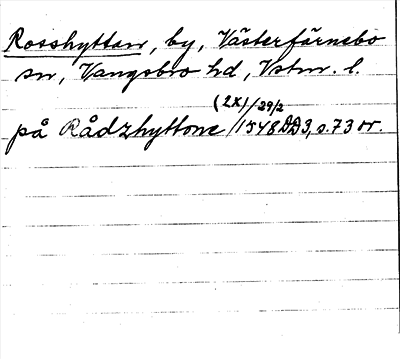 Rosshyttan, by, Västerfärnebo
sn, Vangsbro hd, Vstm. l.
(2X) 29/2
på Rådzhyttone 1548 DD3, s. 73 or.